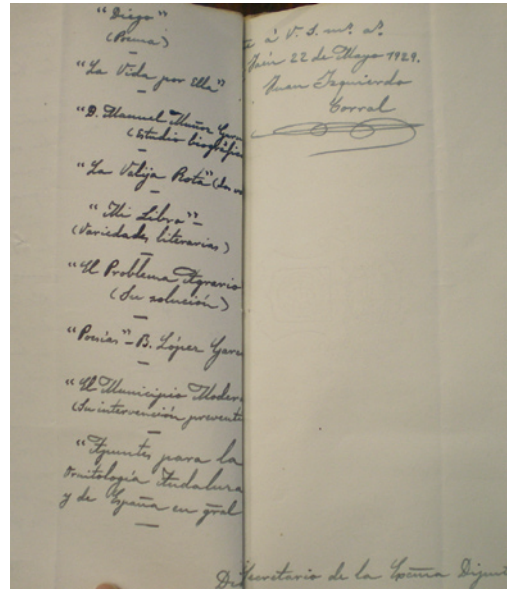 "Diego"
(Poema)
"La Vida por Ella"
"D. Manuel Muñoz Garn
(Estudio biográfico
"La Valija Rota" (
"Mi Libro" –
(Variedades literarias)
"El Problema Agrario
(Su solución)
"Poesías" – B. López Garc
"El Municipio Moder
(Su intervención prevent
"Apuntes para la
Ornitología Andaluza
y de España en gral
à V. S. ms. as.
Jaén 22 de Mayo 1929.
Juan Izquierdo
Corral
Secretario de la